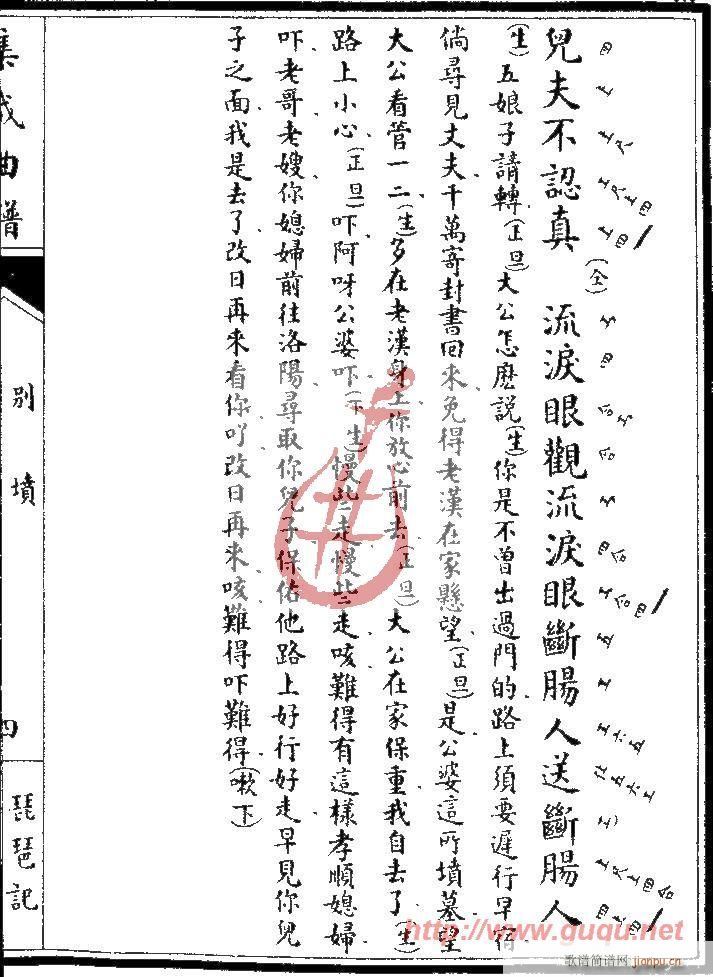 兒夫不認真(仝)流淚眼觀流淚眼斷腸人送斷腸人
(生)五娘子請轉(正旦)大公怎麽說(生)你是不曾出過門的路上須要遲行早宿
倘尋見丈夫千萬寄封書回來免得老漢在家懸望(正旦)是公婆這所墳墓望
大公看管一二(生)多在老漢身上你放心前去(正旦)大公在家保重我自去了(生)
路上小心(正旦)吓阿呀公婆吓(下生)慢些走慢些走咳難得有這樣孝順媳婦
吓老哥老嫂你媳婦前往洛陽尋取你兒子保佑他路上好行好走早見你兒
子之面我是去了改日再來看你吖改日再來咳難得吓難得(嗽下)
集成曲譜
別墳
四
琵琶記
http://www.guqu.net
歌谱简谱网
jianpu.cn